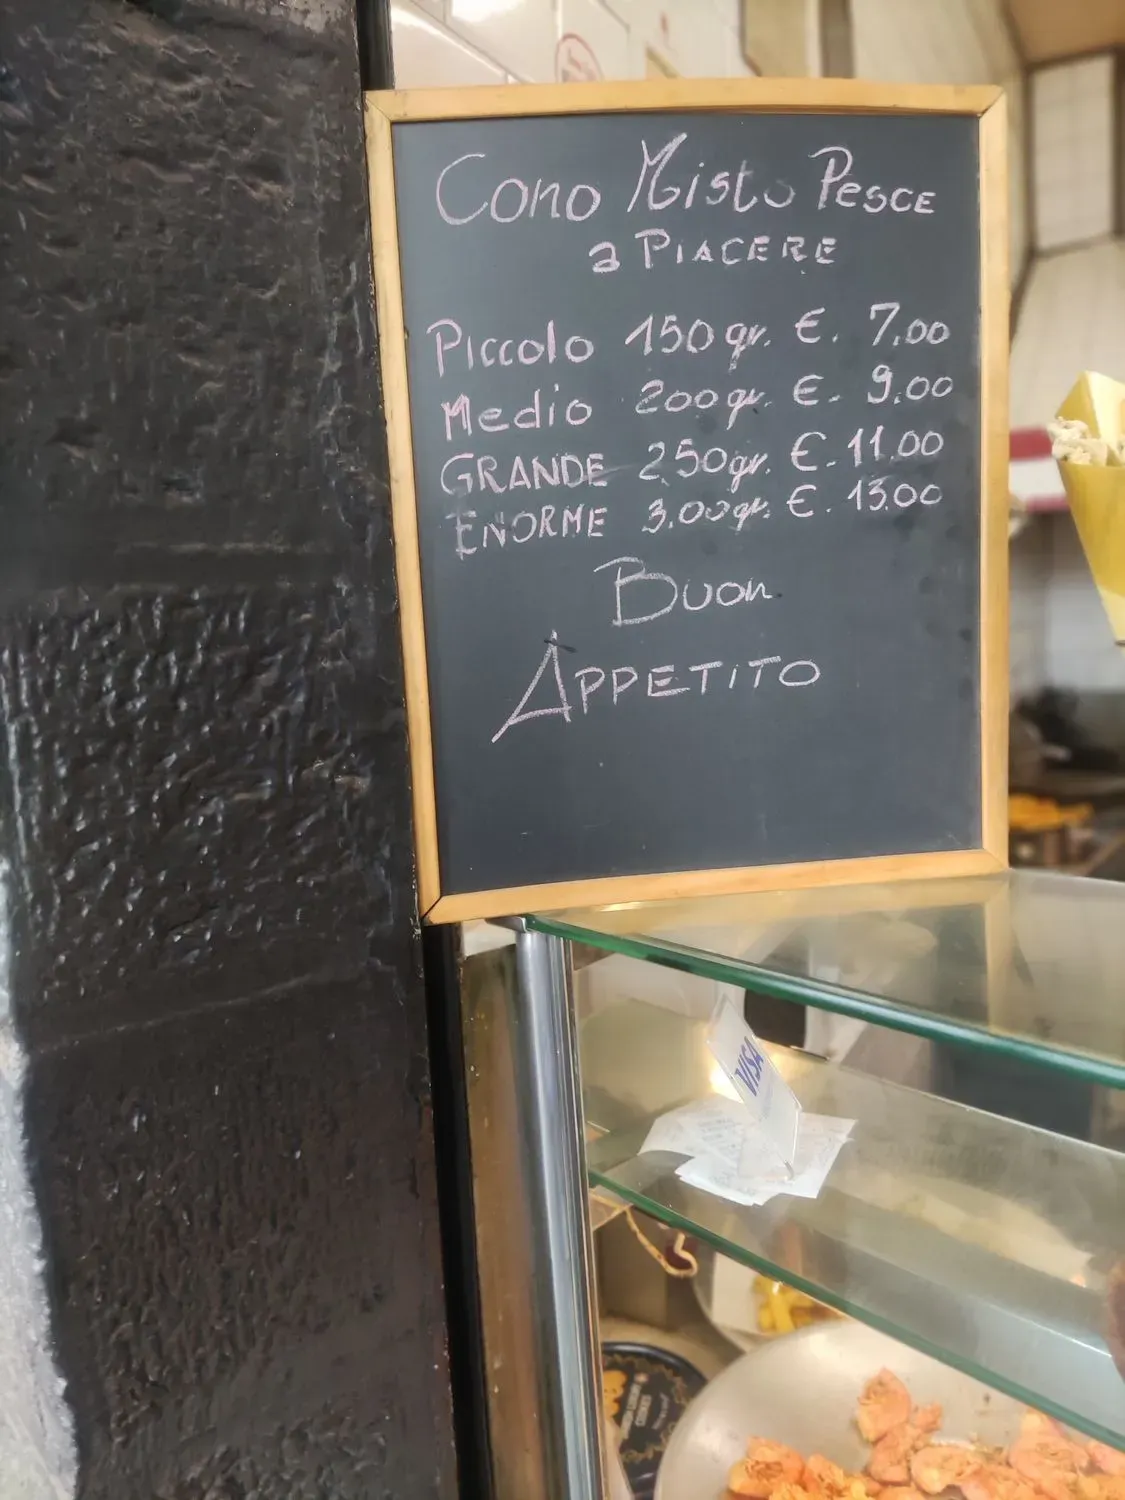 Cono Misto Pesce
a Piacere
Piccolo 150gr. €. 7,00
Medio 200gr. €. 9.00
GRANDE 250gr. €. 11.00
ENORME 3.00gr. €. 13.00
Buon
APPETITO
VISA